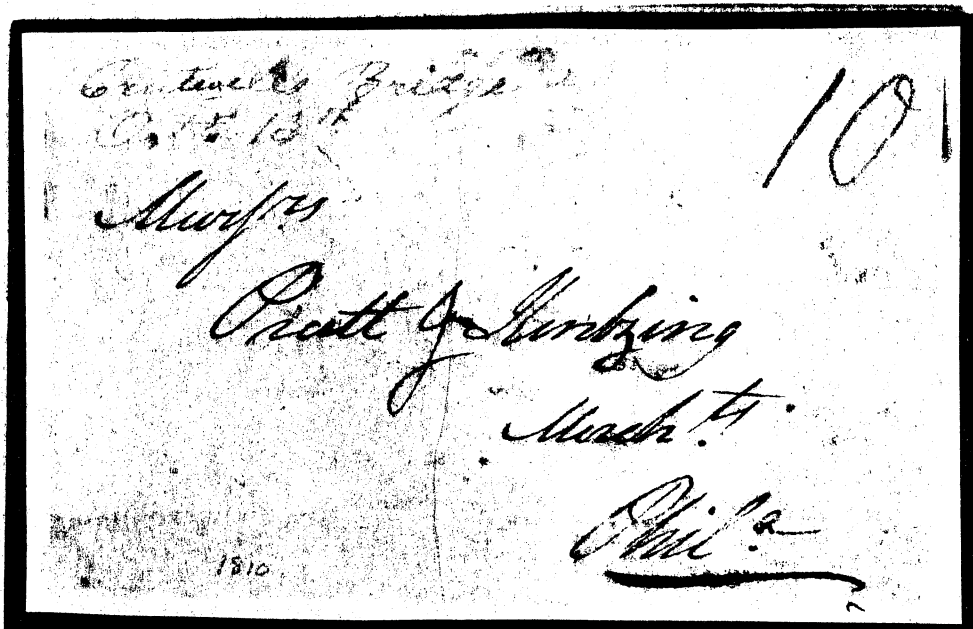 Cantwell's Bridge
Oct. 13th 10
Messrs
Pratt & Kintzing
Merchts.
Phila.
1810